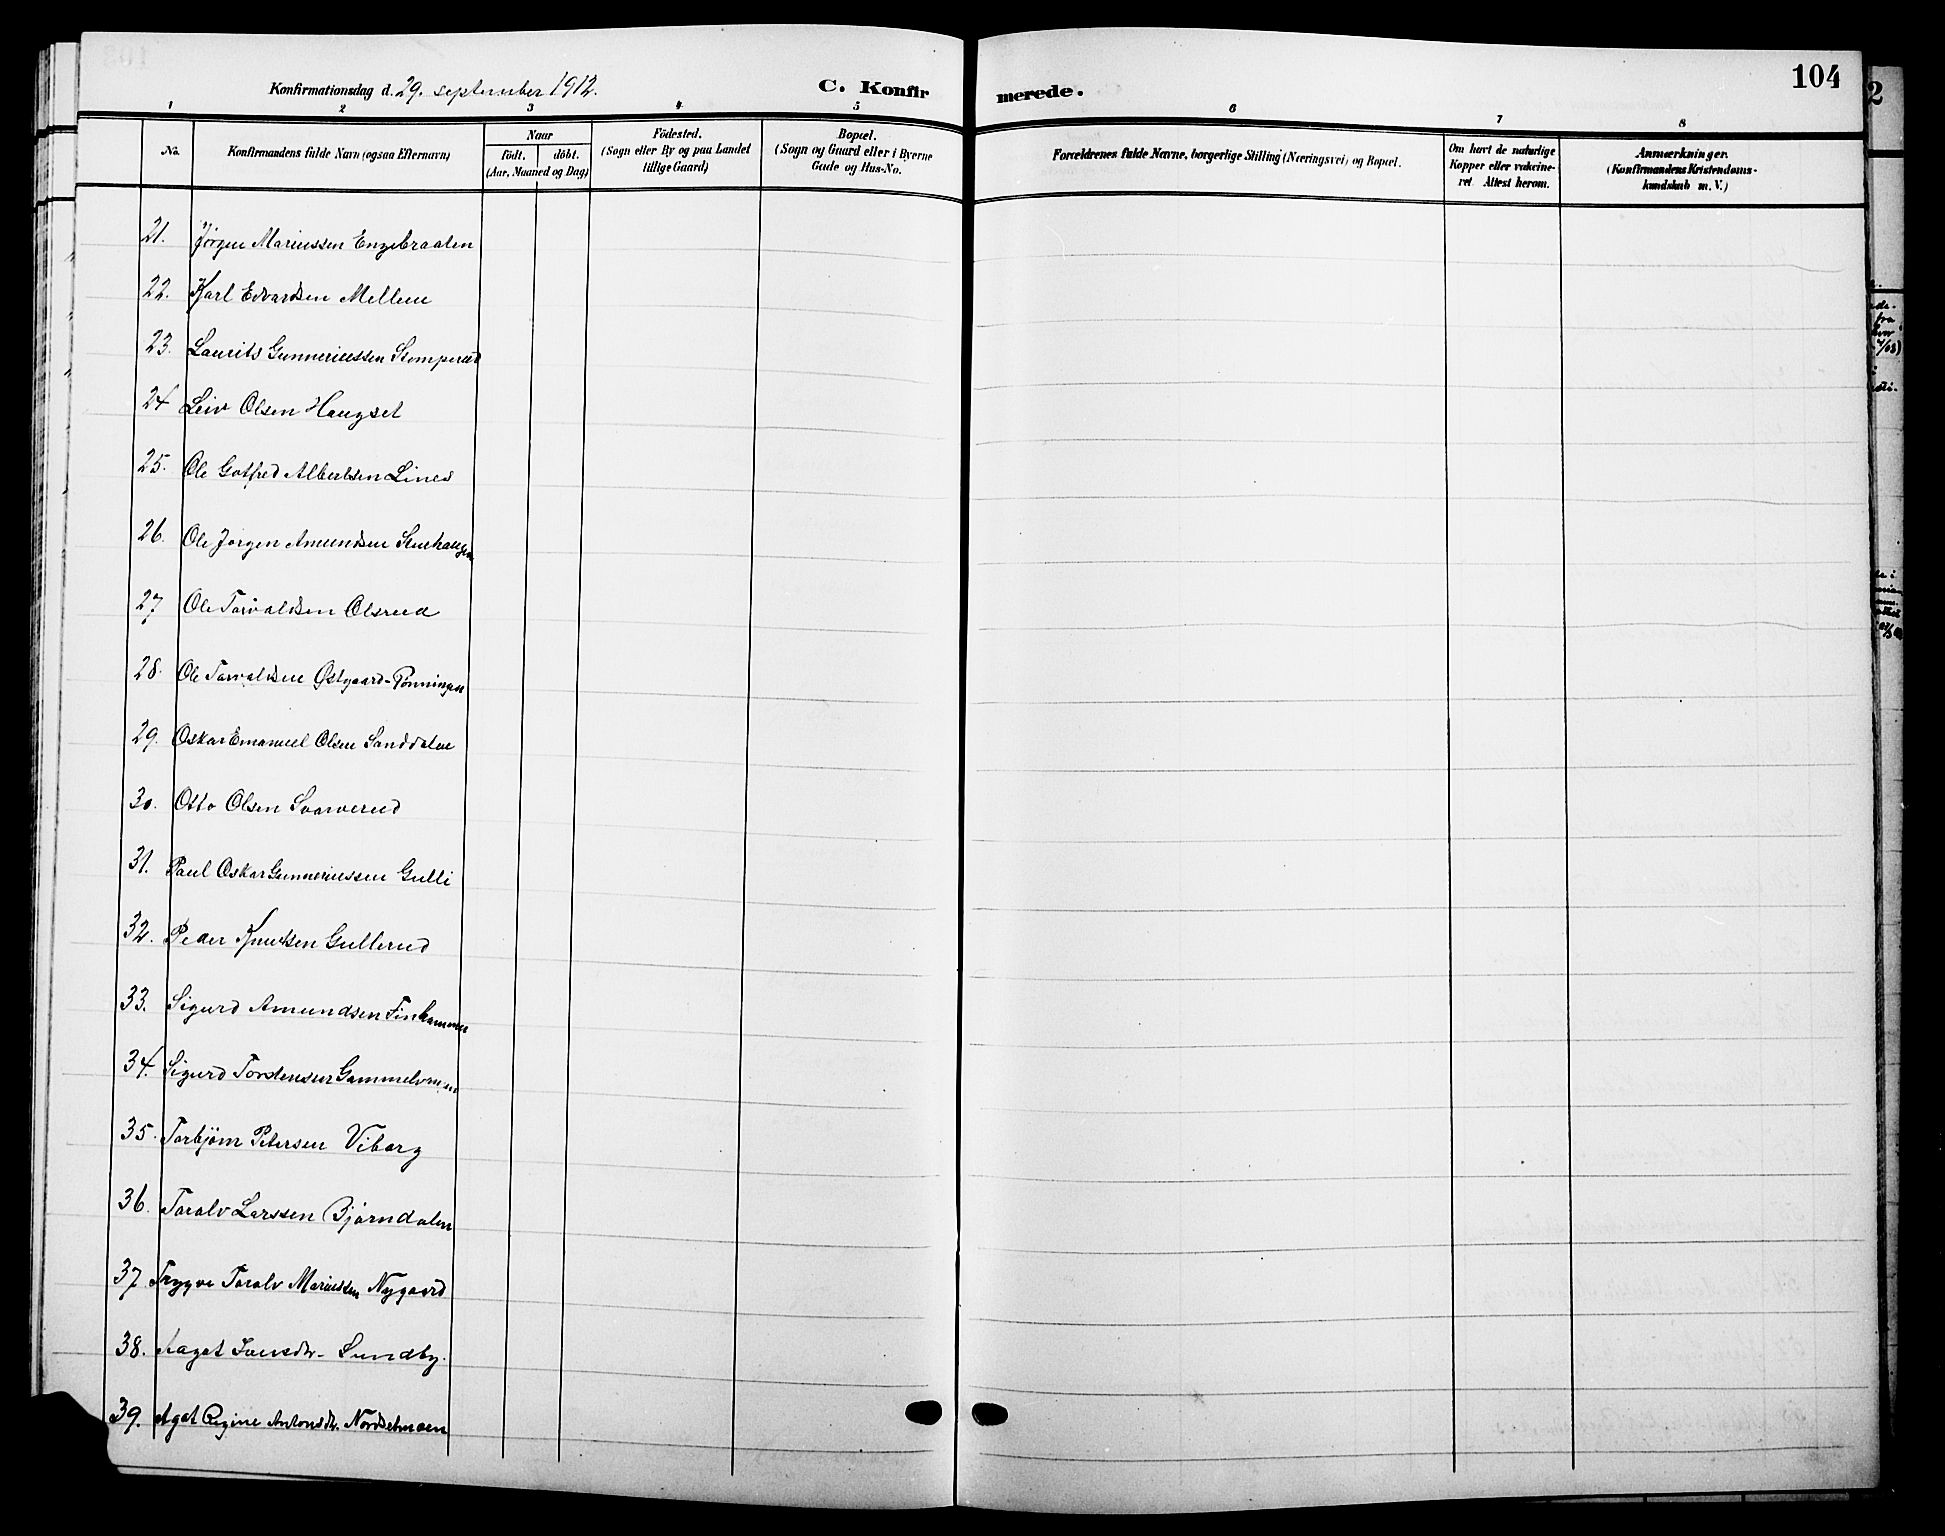 104
Konfirmationsdag d. 29. september 1912.
C. Konfirmerede.
1 2 3 4 5 6 7 8
No.
Konfirmandens fulde Navn (ogsaa Efternavn)
Naar
födt. döbt.
(Aar, Maaned og Dag)
Födested.
(Sogn eller By og paa Landet
tillige Gaard)
Bopæl.
(Sogn og Gaard eller i Byerne
Gade og Hus-No.
Forældrenes fulde Navne, borgerlige Stilling (Næringsvei) og Bopæl.
Om havt de naturlige
Kopper eller vakcine-
ret. Attest herom.
Anmærkninger.
(Konfirmandens Kristendoms-
kundskab m. V.)
21. Jørgen Mariussen Engebraaten
22. Karl Edvardsen Mellem
23. Laurits Gunneriussen Stomperud
24 Leiv Olsen Haugset
25. Ole Gotfred Albertsen Lines
26. Ole Jørgen Amundsen
27 Ole Torvaldsen Olsrud
28. Ole Torvaldsen Østgaard-Tonningen
29. Oskar Emanuel Olsen Sanddalen
30. Otto Olsen Svarverud
31. Paul Oskar Gunneriussen Gulli
32. Peder Knutsen Gullerud
33. Sigurd Amundsen Finhammer
34. Sigurd Torstensen Gammelvrmen
35. Torbjørn Petersen Viborg
36. Toralv Larssen Bjørndalen
37 Trygve Toralv Mariussen Nygaard
38. Aagot Iversdtr. Sundby.
39. Agot Regine Antonsdtr. Nordsetmoen